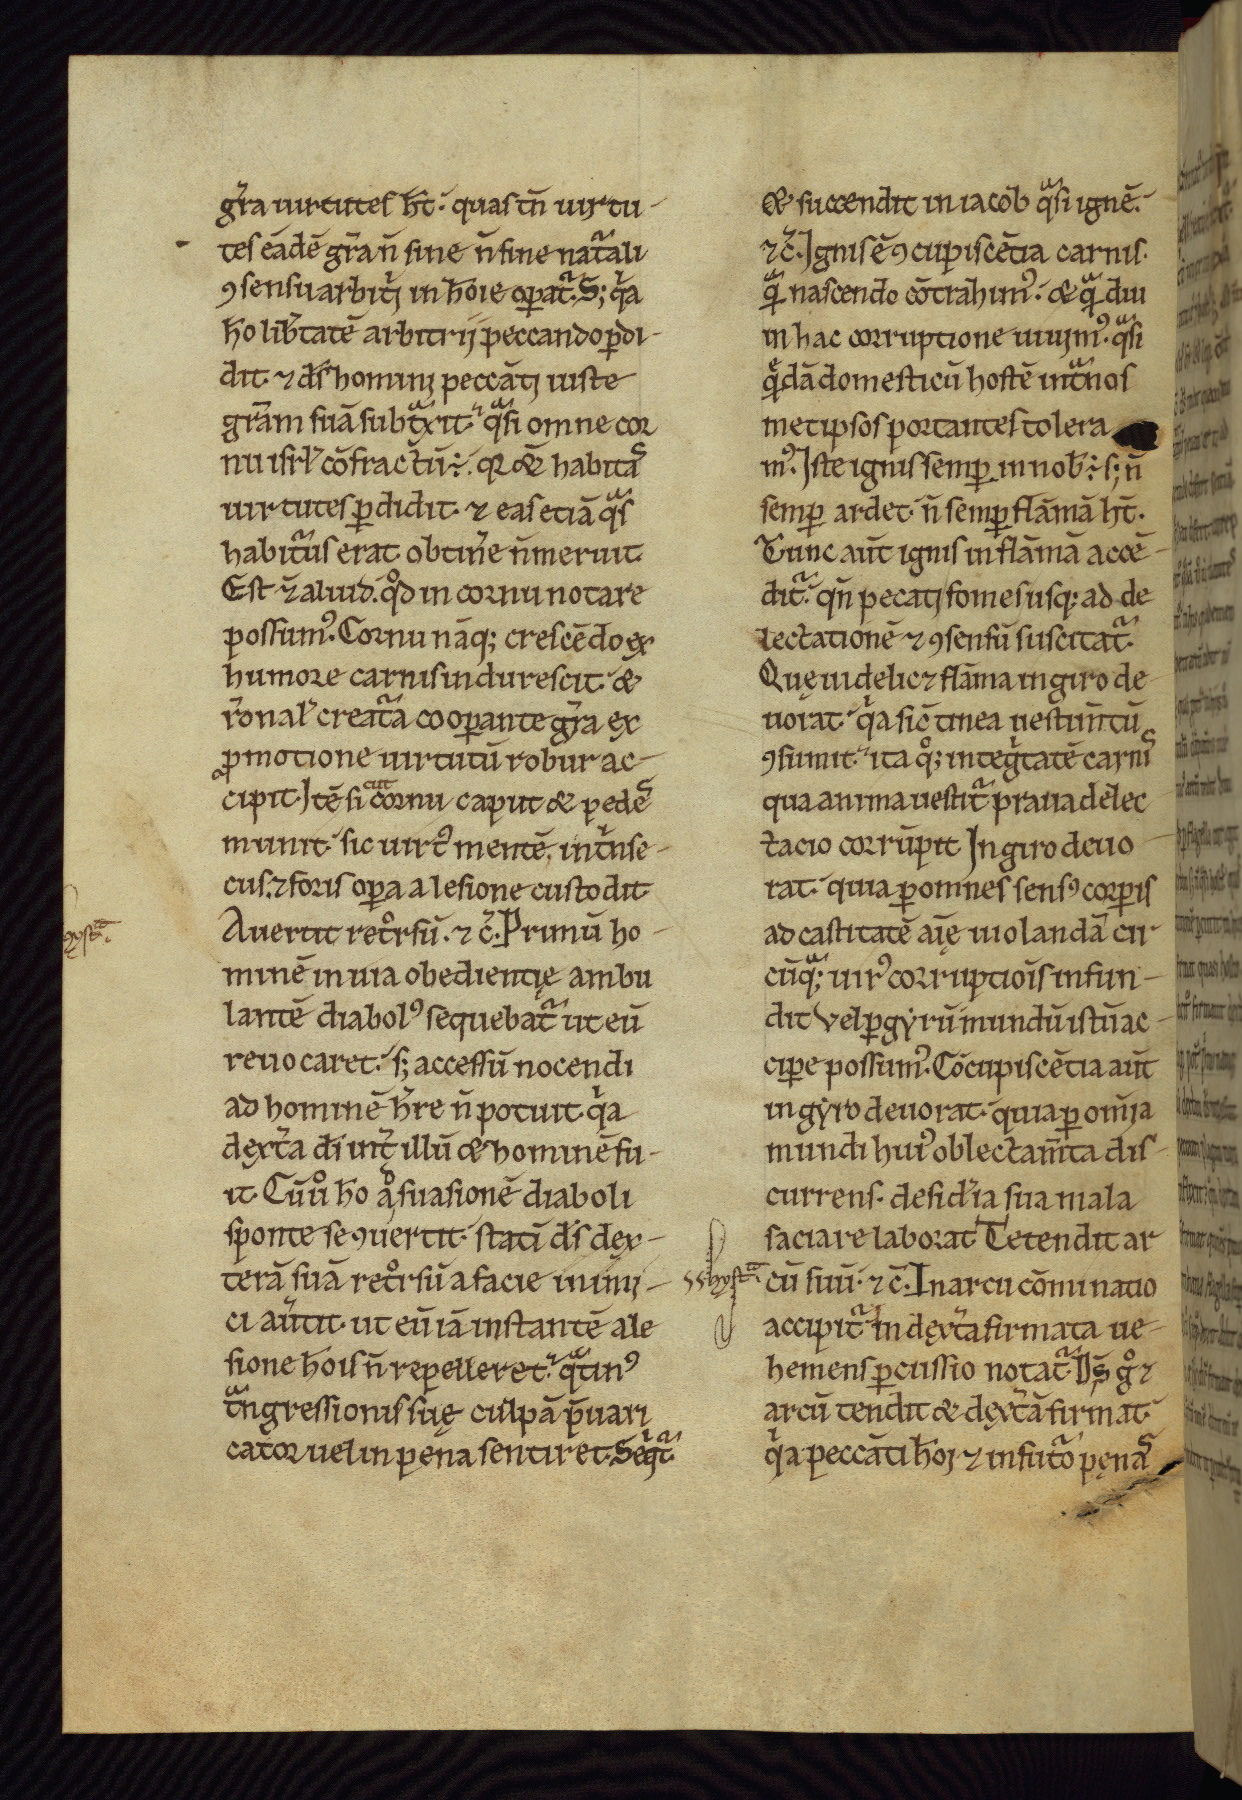 gr̄a uirtutes h̄t. quas tn̄ uirtu-
tes eādē gr̄a n̄ sine n̄ fine natᵃali
ꝯsensu arbitⁱj in hōie oꝑat᷑. S; qⁱa
ho lib̄tatē arbitrij peccando ꝑdi-
dit. ⁊ ds̄ hominj peccātj iuste
gr̄am suā subtᵃxit. qᵃsi omne cor
nu isrl̄ cōfractū. qꝛ & habitaˢ
uirtutes ꝑdidit. ⁊ eas etiā qᵃs
habitur᷑us erat obtin̄e n̄ meruit.
Est ⁊ aliud. qᵒd in cornu notare
possum᷒. Cornu nāq; crescēdo ex
humore carnis indurescit. &
r̄onal̄ creatᵃa cooꝑante gr̄a ex
ꝓmotione uirtutū robur ac-
cipit. Itē sicut cornu caput & pedeˢ
munit. sic uirt᷒ mentē. intⁱnse-
cus. ⁊ foris oꝑa a lesione custodit
Auertit retᵒrsū. ⁊ c̄. Primū ho-
minē in uia obedientię ambu
lantē diabol᷒ sequebat᷑ ut eū
reuocaret. s; accessū nocendi
ad hominē h̄re n̄ potuit. qⁱa
dext̄a dī int̄ illū & hominē fu-
it. Cū uᵒ ho aᵈ suasionē diaboli
sponte se ꝯuertit. statī ds̄ dex-
terā suā retᵒrsū a facie inimj-
ci au̓tit. ut eū iā instantē a le
sione hōis n̄ repelleret. qᵃtin᷒
tᵃngressionis suę culpā p̄uari
cator uel in pena sentiret. Seqⁱt᷑
& succendit in iacob qᵃsi ignē.
⁊ c̄. Ignis ē ꝯcupiscētia carnis.
qᵃ nascendo cōtrahim᷒. & qᵃdiu
in hac corruptione uiuim᷒. qᵃsi
qᵉdā domesticū hostē intᵃ nos
metipsos portantes tolera
m᷒. Iste ignis semꝑ in nob̄. s; n̄
semꝑ ardet. n̄ semꝑ flāmā h̄t.
Tunc aūt ignis in flāmā accē-
dit᷑. qn̄ pecatj fomes usq; ad de
lectationē ⁊ ꝯsensū suscitat᷑.
Quę uidelic⁊ flāma in giro de-
uorat. qⁱa sic̄ tinea uestim̄tū
ꝯsumit. ita qᵒ; integⁱtatē carniˢ
qua anima uestit᷑ praua delec
tacio corrūpit. In giro deuo-
rat. quia ꝑ omnes sens᷒ corꝑis
ad castitatē aīę uiolandā cir
cūqᵃ; uir᷒ corruptiōis infun-
dit. Vel ꝑ gyrū mundū istū ac-
ciꝑe possum᷒. Cōcupiscētia aūt
in gyro deuorat. quia ꝑ om̄ia
mundi hui᷒ oblectam̄ta dis-
currens. desid̓ia sua mala
saciare laborat. Tetendit ar
cū suū. ⁊ c̄. In arcu cōminatio
accipit᷑. In dext̄a firmata ue-
hemens ꝑcussio notat᷑. Ds̄ gᵒ ⁊
arcū tendit & dext̄ā firmat.
qⁱa peccāti hoj ⁊ in futᵃo penaˢ